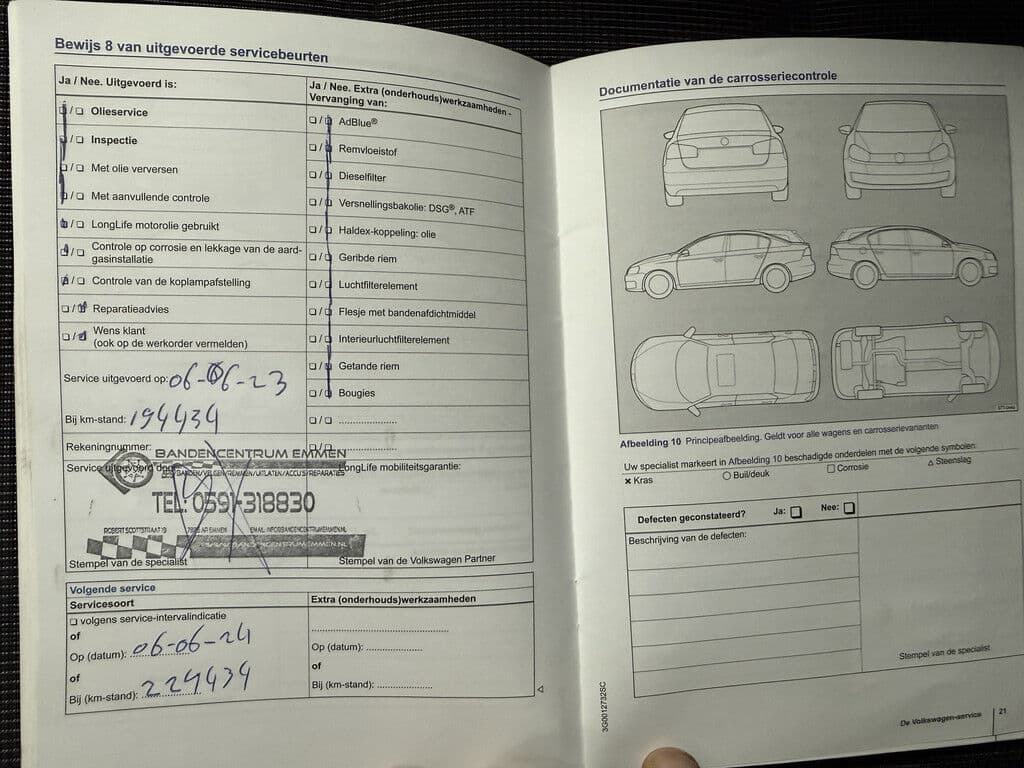 Bewijs 8 van uitgevoerde servicebeurten
Ja / Nee. Uitgevoerd is:
❏ / ❏ Olieservice
❏ / ❏ Inspectie
❏ / ❏ Met olie verversen
❏ / ❏ Met aanvullende controle
❏ / ❏ LongLife motorolie gebruikt
❏ / ❏ Controle op corrosie en lekkage van de aard-
gasinstallatie
❏ / ❏ Controle van de koplampafstelling
❏ / ❏ Reparatieadvies
❏ / ❏ Wens klant
(ook op de werkorder vermelden)
Service uitgevoerd op: 06-06-23
Bij km-stand: 194434
Rekeningnummer:
Service uitgevoerd door:
BANDENCENTRUM EMMEN
BANDEN/VELGEN/REMMEN/UITLATEN/ACCU'S/REPARATIES
TEL: 0591-318830
ROBERT SCOTTSTRAAT 19 EMMEN EMAIL: INFO@BANDENCENTRUMEMMEN.NL
WWW.BANDENCENTRUMEMMEN.NL
Stempel van de specialist
Ja / Nee. Extra (onderhouds)werkzaamheden -
Vervanging van:
❏ / ❏ AdBlue®
❏ / ❏ Remvloeistof
❏ / ❏ Dieselfilter
❏ / ❏ Versnellingsbakolie: DSG®, ATF
❏ / ❏ Haldex-koppeling: olie
❏ / ❏ Geribde riem
❏ / ❏ Luchtfilterelement
❏ / ❏ Flesje met bandenafdichtmiddel
❏ / ❏ Interieurluchtfilterelement
❏ / ❏ Getande riem
❏ / ❏ Bougies
❏ / ❏ ....................
❏ / ❏ ....................
LongLife mobiliteitsgarantie:
Stempel van de Volkswagen Partner
Volgende service
Servicesoort
❏ volgens service-intervalindicatie
of
Op (datum): 06-06-24
of
Bij (km-stand): 224434
Extra (onderhouds)werkzaamheden
................................................
Op (datum): ....................
of
Bij (km-stand): ....................
Documentatie van de carrosseriecontrole
Afbeelding 10 Principeafbeelding. Geldt voor alle wagens en carrosserievarianten
Uw specialist markeert in Afbeelding 10 beschadigde onderdelen met de volgende symbolen:
✕ Kras ○ Buil/deuk ❏ Corrosie △ Steenslag
Defecten geconstateerd? Ja: ❏ Nee: ❏
Beschrijving van de defecten:
Stempel van de specialist
3G0012732SC
De Volkswagen-service 21